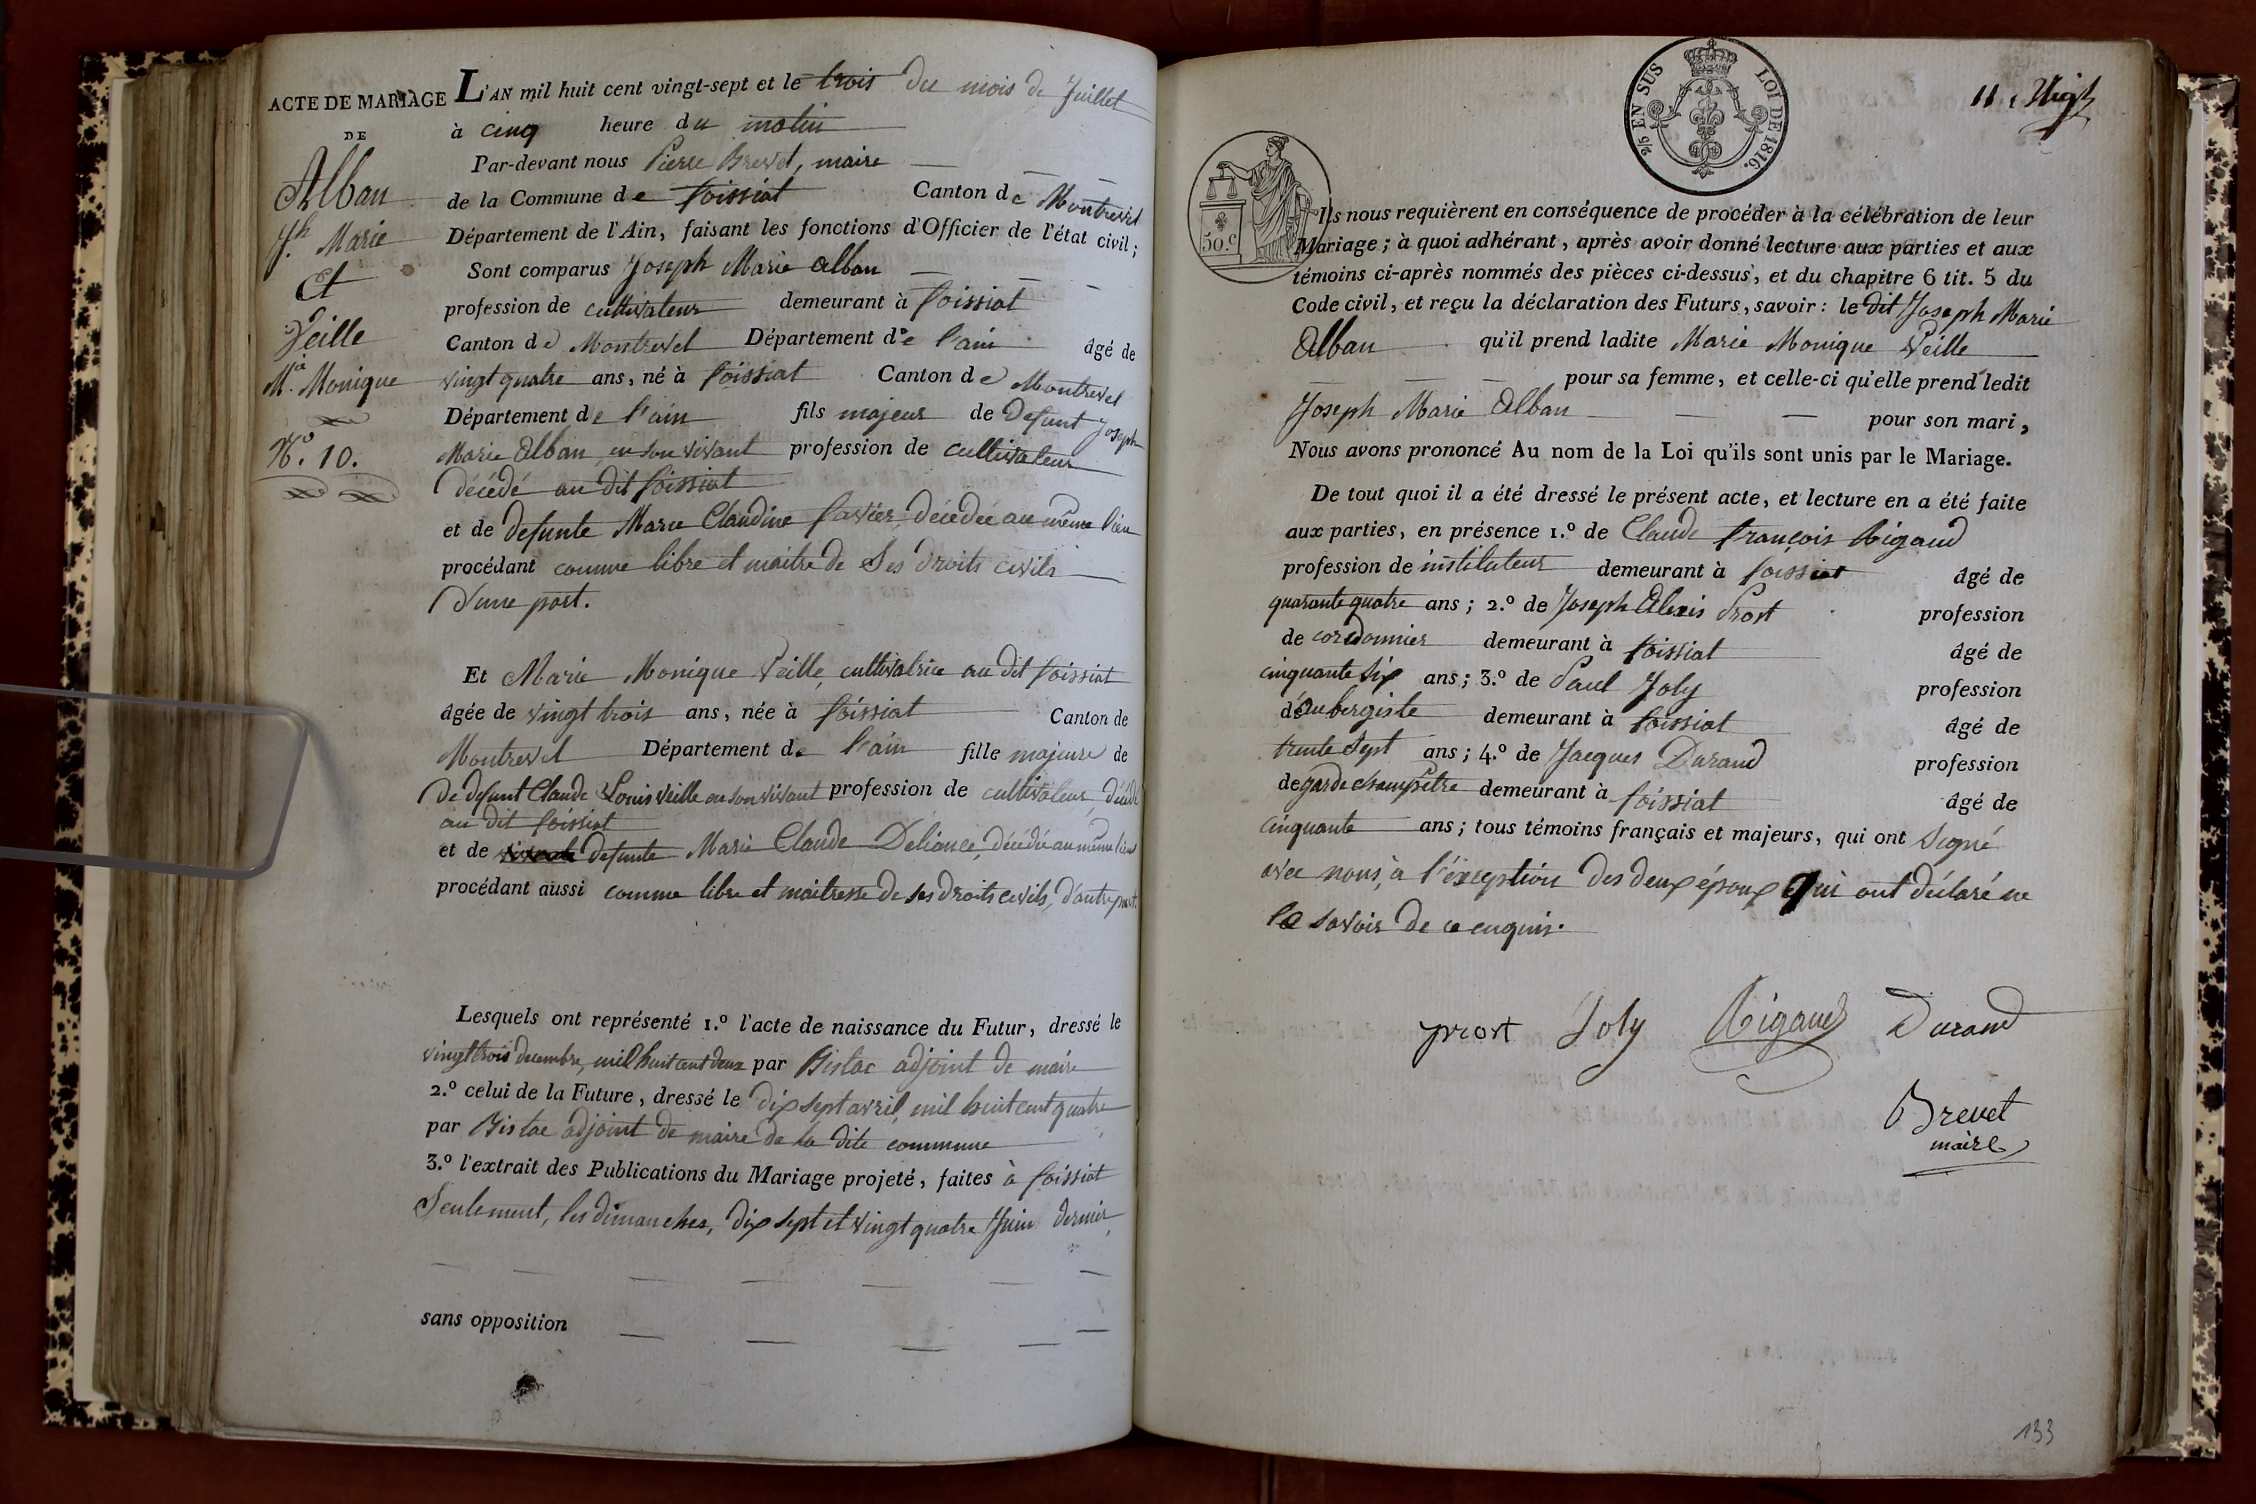 ACTE DE MARIAGE
DE
Alban
Jh. Marie
Et
Veille
Mia. Monique
No. 10.
L'AN mil huit cent vingt-sept et le trois du mois de Juillet
à cinq heure du matin
Par-devant nous Pierre Brevet, maire
de la Commune de foissiat Canton de Montrevel
Département de l'Ain, faisant les fonctions d'Officier de l'état civil;
Sont comparus Joseph Marie Alban
profession de cultivateur demeurant à foissiat
Canton de Montrevel Département de l'ain âgé de
vingt quatre ans, né à foissiat Canton de Montrevel
Département de l'ain fils majeur de Defunt Joseph
Marie Alban, en son vivant profession de cultivateur
décédé au dit foissiat
et de defunte Marie Claudine favier, décédée au même lieu
procédant comme libre et maitre de Ses droits civils
D'une part.
Et Marie Monique Veille, cultivatrice au dit foissiat
âgée de vingt trois ans, née à foissiat Canton de
Montrevel Département de l'ain fille majeure de
De defunt Claude Louis Veille en son vivant profession de cultivateur, décédé
au dit foissiat
et de defunte Marie Claude Deliance, décédée au même lieu
procédant aussi comme libre et maitresse de ses droits civils, d'autre part.
Lesquels ont représenté 1.º l'acte de naissance du Futur, dressé le
vingt trois decembre, mil huit cent deux par Bistac adjoint de maire
2.º celui de la Future, dressé le dix sept avril, mil huit cent quatre
par Bistac adjoint de maire de la dite commune
3.º l'extrait des Publications du Mariage projeté, faites à foissiat
Seulement, les dimanches, dix sept et vingt quatre Juin dernier,
sans opposition
2/5 EN SUS LOI DE 1816.
50.c
11e
Ils nous requièrent en conséquence de procéder à la célébration de leur
Mariage; à quoi adhérant, après avoir donné lecture aux parties et aux
témoins ci-après nommés des pièces ci-dessus, et du chapitre 6 tit. 5 du
Code civil, et reçu la déclaration des Futurs, savoir: le dit Joseph Marie
Alban qu'il prend ladite Marie Monique Veille
pour sa femme, et celle-ci qu'elle prend ledit
Joseph Marie Alban pour son mari,
Nous avons prononcé Au nom de la Loi qu'ils sont unis par le Mariage.
De tout quoi il a été dressé le présent acte, et lecture en a été faite
aux parties, en présence 1.º de Claude françois Rigaud
profession de instituteur demeurant à foissiat âgé de
quarante quatre ans; 2.º de Joseph Alexis Prost profession
de cordonnier demeurant à foissiat âgé de
cinquante six ans; 3.º de Paul Joly profession
d'aubergiste demeurant à foissiat âgé de
trente sept ans; 4.º de Jacques Durand profession
de garde champêtre demeurant à foissiat âgé de
cinquante ans; tous témoins français et majeurs, qui ont signé
avec nous, à l'éxception des deux époux qui ont déclaré ne
le savoir de ce enquis.
prost Joly Rigaud Durand
Brevet
maire
133